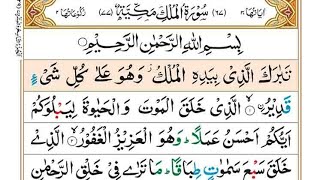 اٰیَاتُهَا ۳۰ (۶۷) سُوْرَةُ الْمُلْكِ مَكِّیَّةٌ (۷۷) رُكُوْعَاتُهَا ۲
بِسْمِ اللّٰهِ الرَّحْمٰنِ الرَّحِیْمِ
تَبٰرَكَ الَّذِیْ بِیَدِهِ الْمُلْكُ ۫ وَهُوَ عَلٰی كُلِّ شَیْءٍ
قَدِیْرُ ۙ﴿۱﴾ الَّذِیْ خَلَقَ الْمَوْتَ وَالْحَیٰوةَ لِیَبْلُوَكُمْ
اَیُّكُمْ اَحْسَنُ عَمَلًا ؕ وَهُوَ الْعَزِیْزُ الْغَفُوْرُ ۙ﴿۲﴾ الَّذِیْ
خَلَقَ سَبْعَ سَمٰوٰتٍ طِبَاقًا ؕ مَا تَرٰی فِیْ خَلْقِ الرَّحْمٰنِ